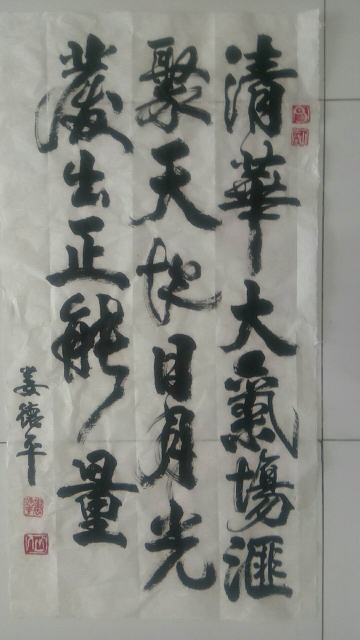 清華大氣場滙
聚天地日月光
發出正能量
姜德平